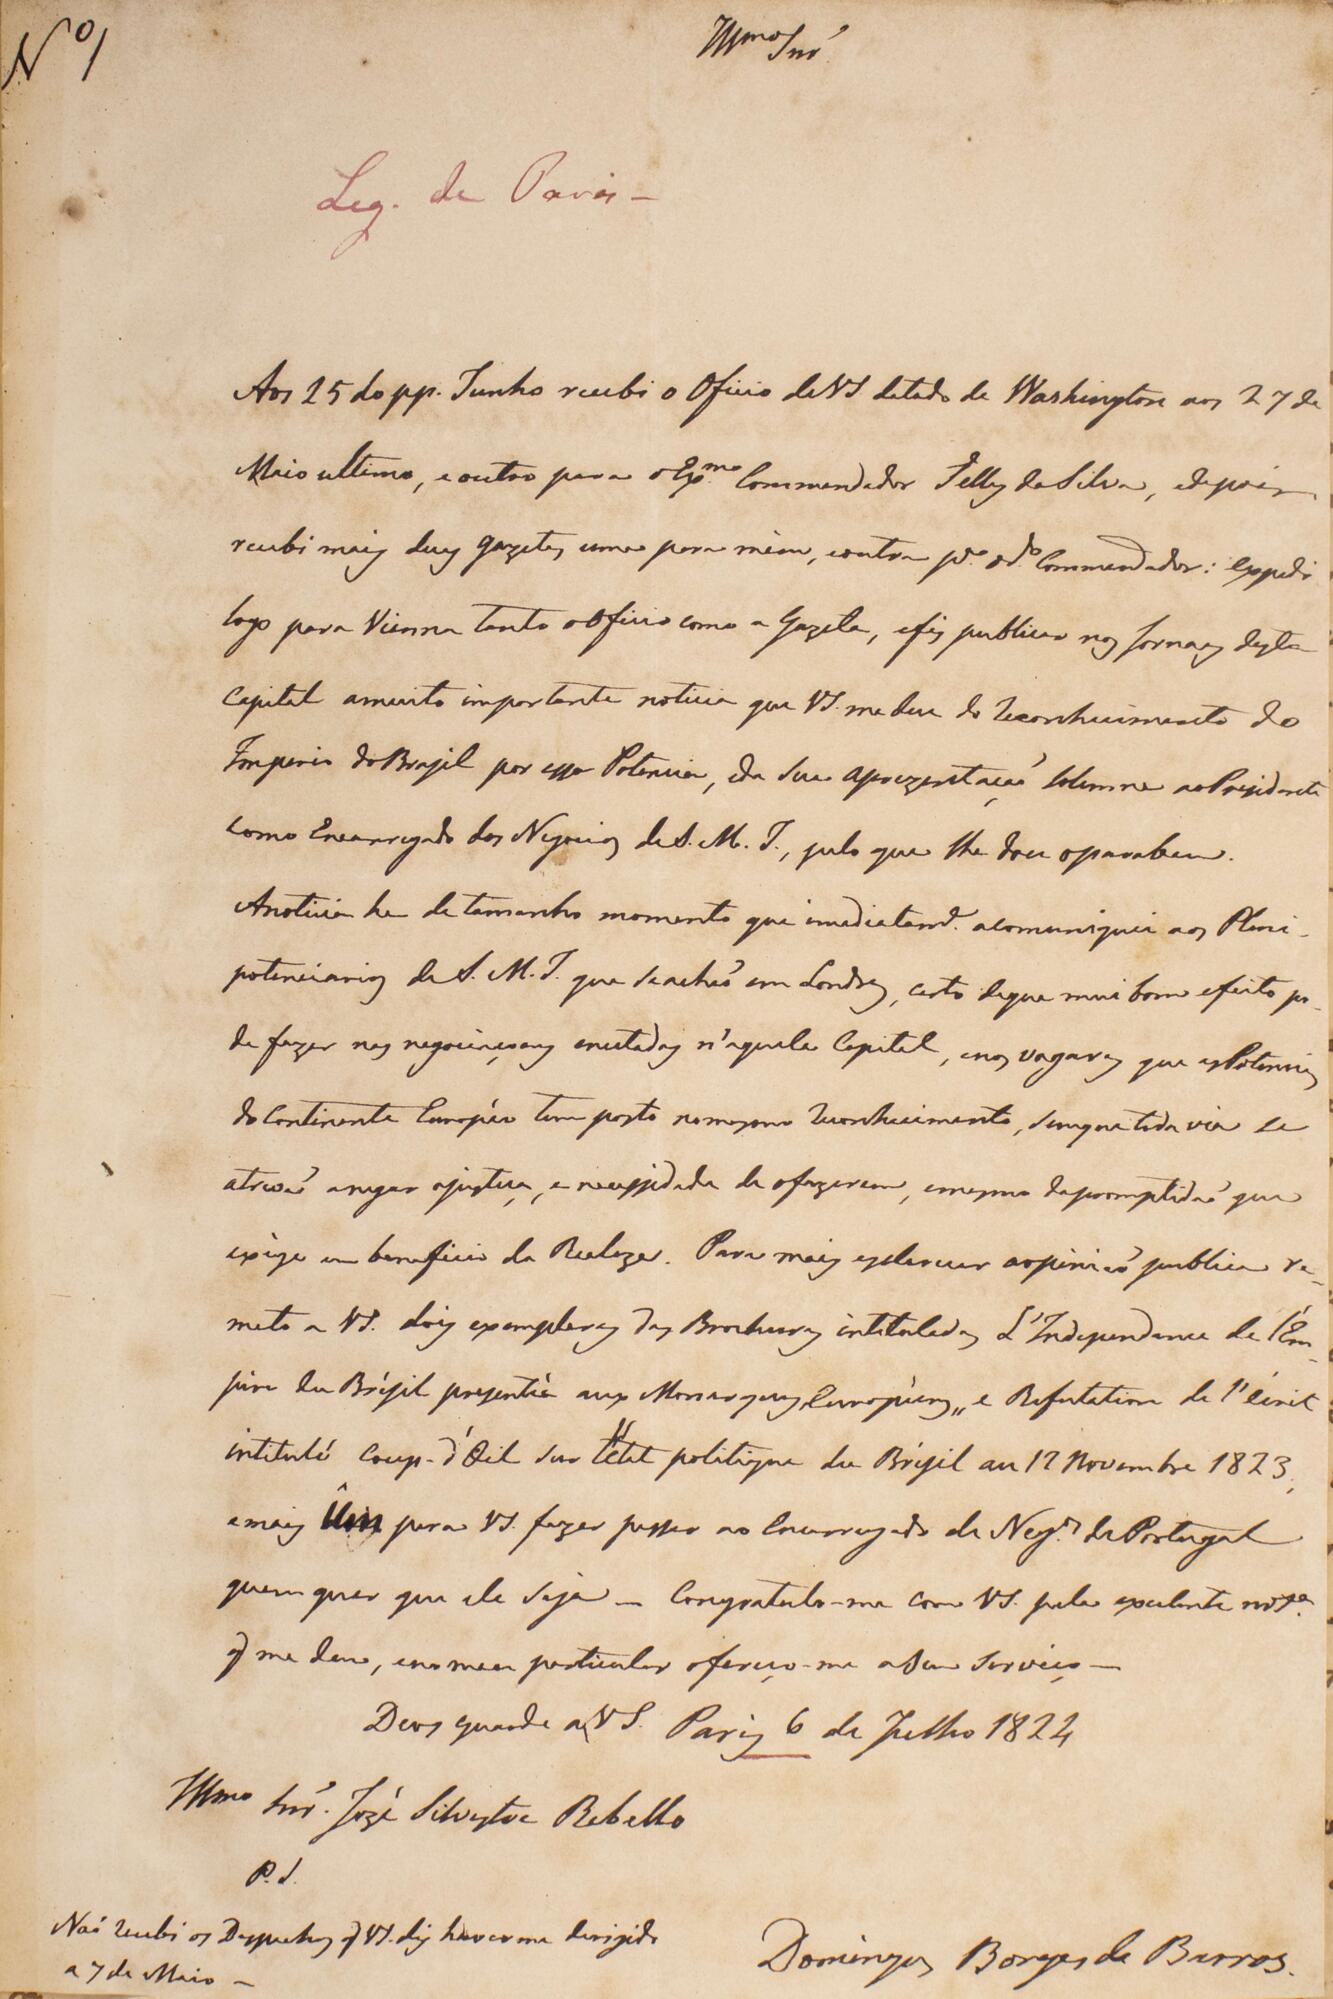 Nº 1
Illmo Snr.
Leg. de Paris —
Aos 25 do pp. Junho recebi o Oficio de VS datado de Washington aos 27 de
Maio ultimo, e outro para o Exmo. Commendador Telles da Silva, e depois
recebi mais duas gazetas uma para mim, e outra pa. o do. Commendador: expedi
logo para Vienna tanto o Oficio como a Gazeta, e fiz publicar nos Jornaes desta
Capital a muito importante noticia que VS. me deu do reconhecimento do
Imperio do Brazil por essa Potencia, e da sua aprezentação solemne ao Prezidente
como Encarregado dos Negocios de S. M. I., pelo que lhe dou o parabem.
A noticia he de tamanho momento que imediatamte. a comuniquei aos Pleni-
potenciarios de S. M. I. que se achão em Londres, certo de que mui bom efeito po-
de fazer nas negociaçoens encetadas n'aquela Capital, e nos vagares que as Potencias
do Continente Européo tem posto no mesmo reconhecimento, sem que toda via se
atrevão a negar a justiça, e necessidade de o fazerem, e mesmo da promptidão que
exige em beneficio da Realeza. Para mais esclarecer a opinião publica re-
meto a VS. dois exemplares das Brochuras intituladas L'Independance de l'Em-
pire du Brésil presentée aux Monarques Européens,, e Refutation de l'écrit
intitulé Coup-d'Oeil sur l'état politique du Brésil au 12 Novembre 1823,
e mais Um para VS. fazer passar ao Encarregado de Negos. de Portugal
quem quer que ele seja — Congratulo-me com VS. pela excelente nota.
q me deu, e no meu particular ofereço-me a seu serviço —
Deos guarde a VS. Paris 6 de Julho 1824
Illmo Snr. Jozé Silvestre Rebello
P. S.
Não recebi os Despachos q VS. diz haver-me dirigido
a 7 de Maio —
Domingos Borges de Barros.